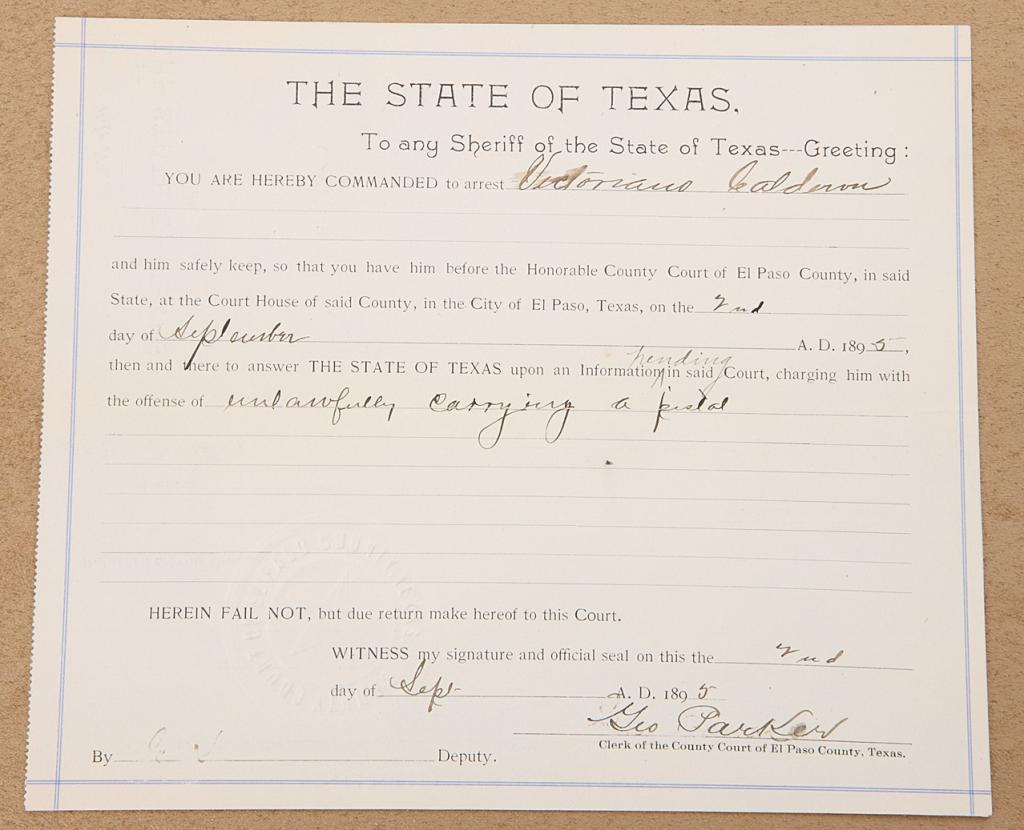 THE STATE OF TEXAS.
To any Sheriff of the State of Texas---Greeting:
YOU ARE HEREBY COMMANDED to arrest Victoriano Calderon
and him safely keep, so that you have him before the Honorable County Court of El Paso County, in said
State, at the Court House of said County, in the City of El Paso, Texas, on the 2nd
day of September A. D. 1895,
pending
then and there to answer THE STATE OF TEXAS upon an Information in said Court, charging him with
the offense of unlawfully carrying a pistol
HEREIN FAIL NOT, but due return make hereof to this Court.
WITNESS my signature and official seal on this the 2nd
day of Sept- A. D. 1895
Geo Parker
Clerk of the County Court of El Paso County, Texas.
By Deputy.